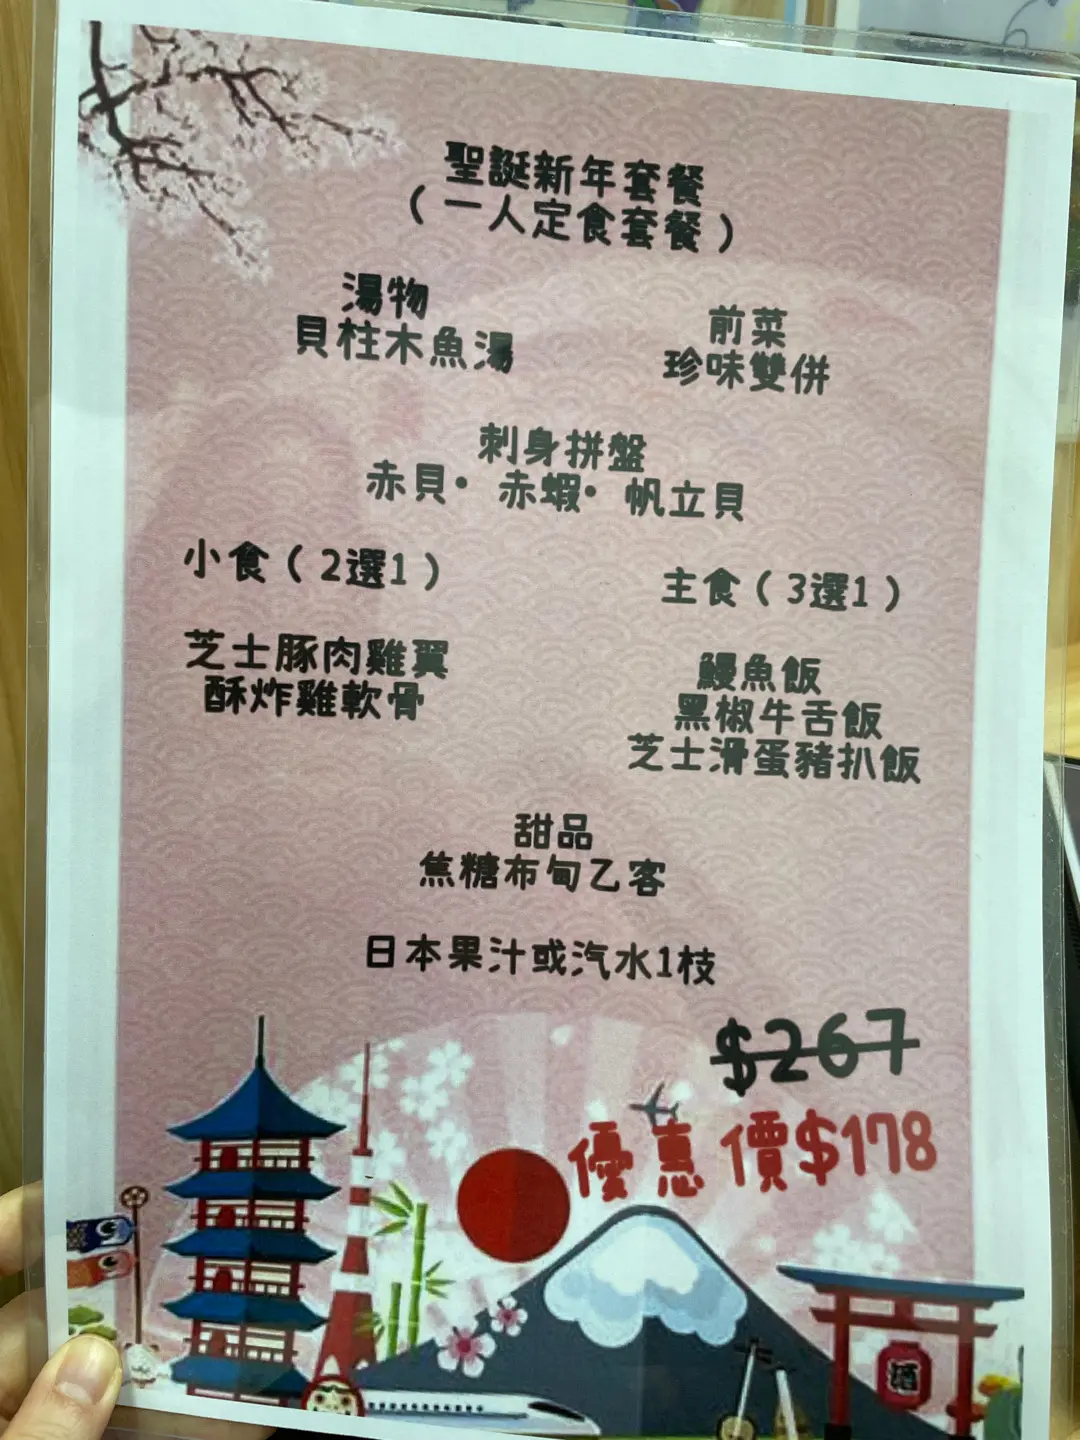 聖誕新年套餐
（一人定食套餐）
湯物
貝柱木魚湯
前菜
珍味雙併
刺身拼盤
赤貝• 赤蝦• 帆立貝
小食（2選1）
芝士豚肉雞翼
酥炸雞軟骨
主食（3選1）
鰻魚飯
黑椒牛舌飯
芝士滑蛋豬扒飯
甜品
焦糖布甸乙客
日本果汁或汽水1枝
$267
優惠價$178
酒